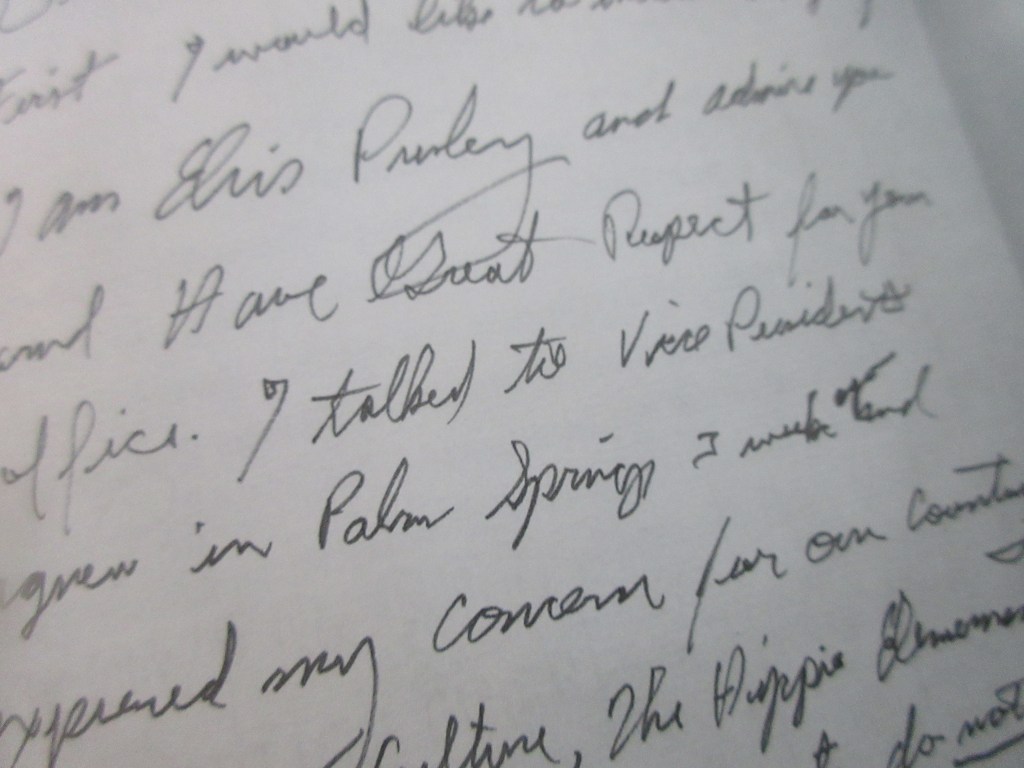 First I would like to
I am Elvis Presley and admire you
and Have Great Respect for your
office. I talked to Vice President
agnew in Palm Springs 3 weeks and
expressed my concern for our country
Culture, The Hippie Elements
do not